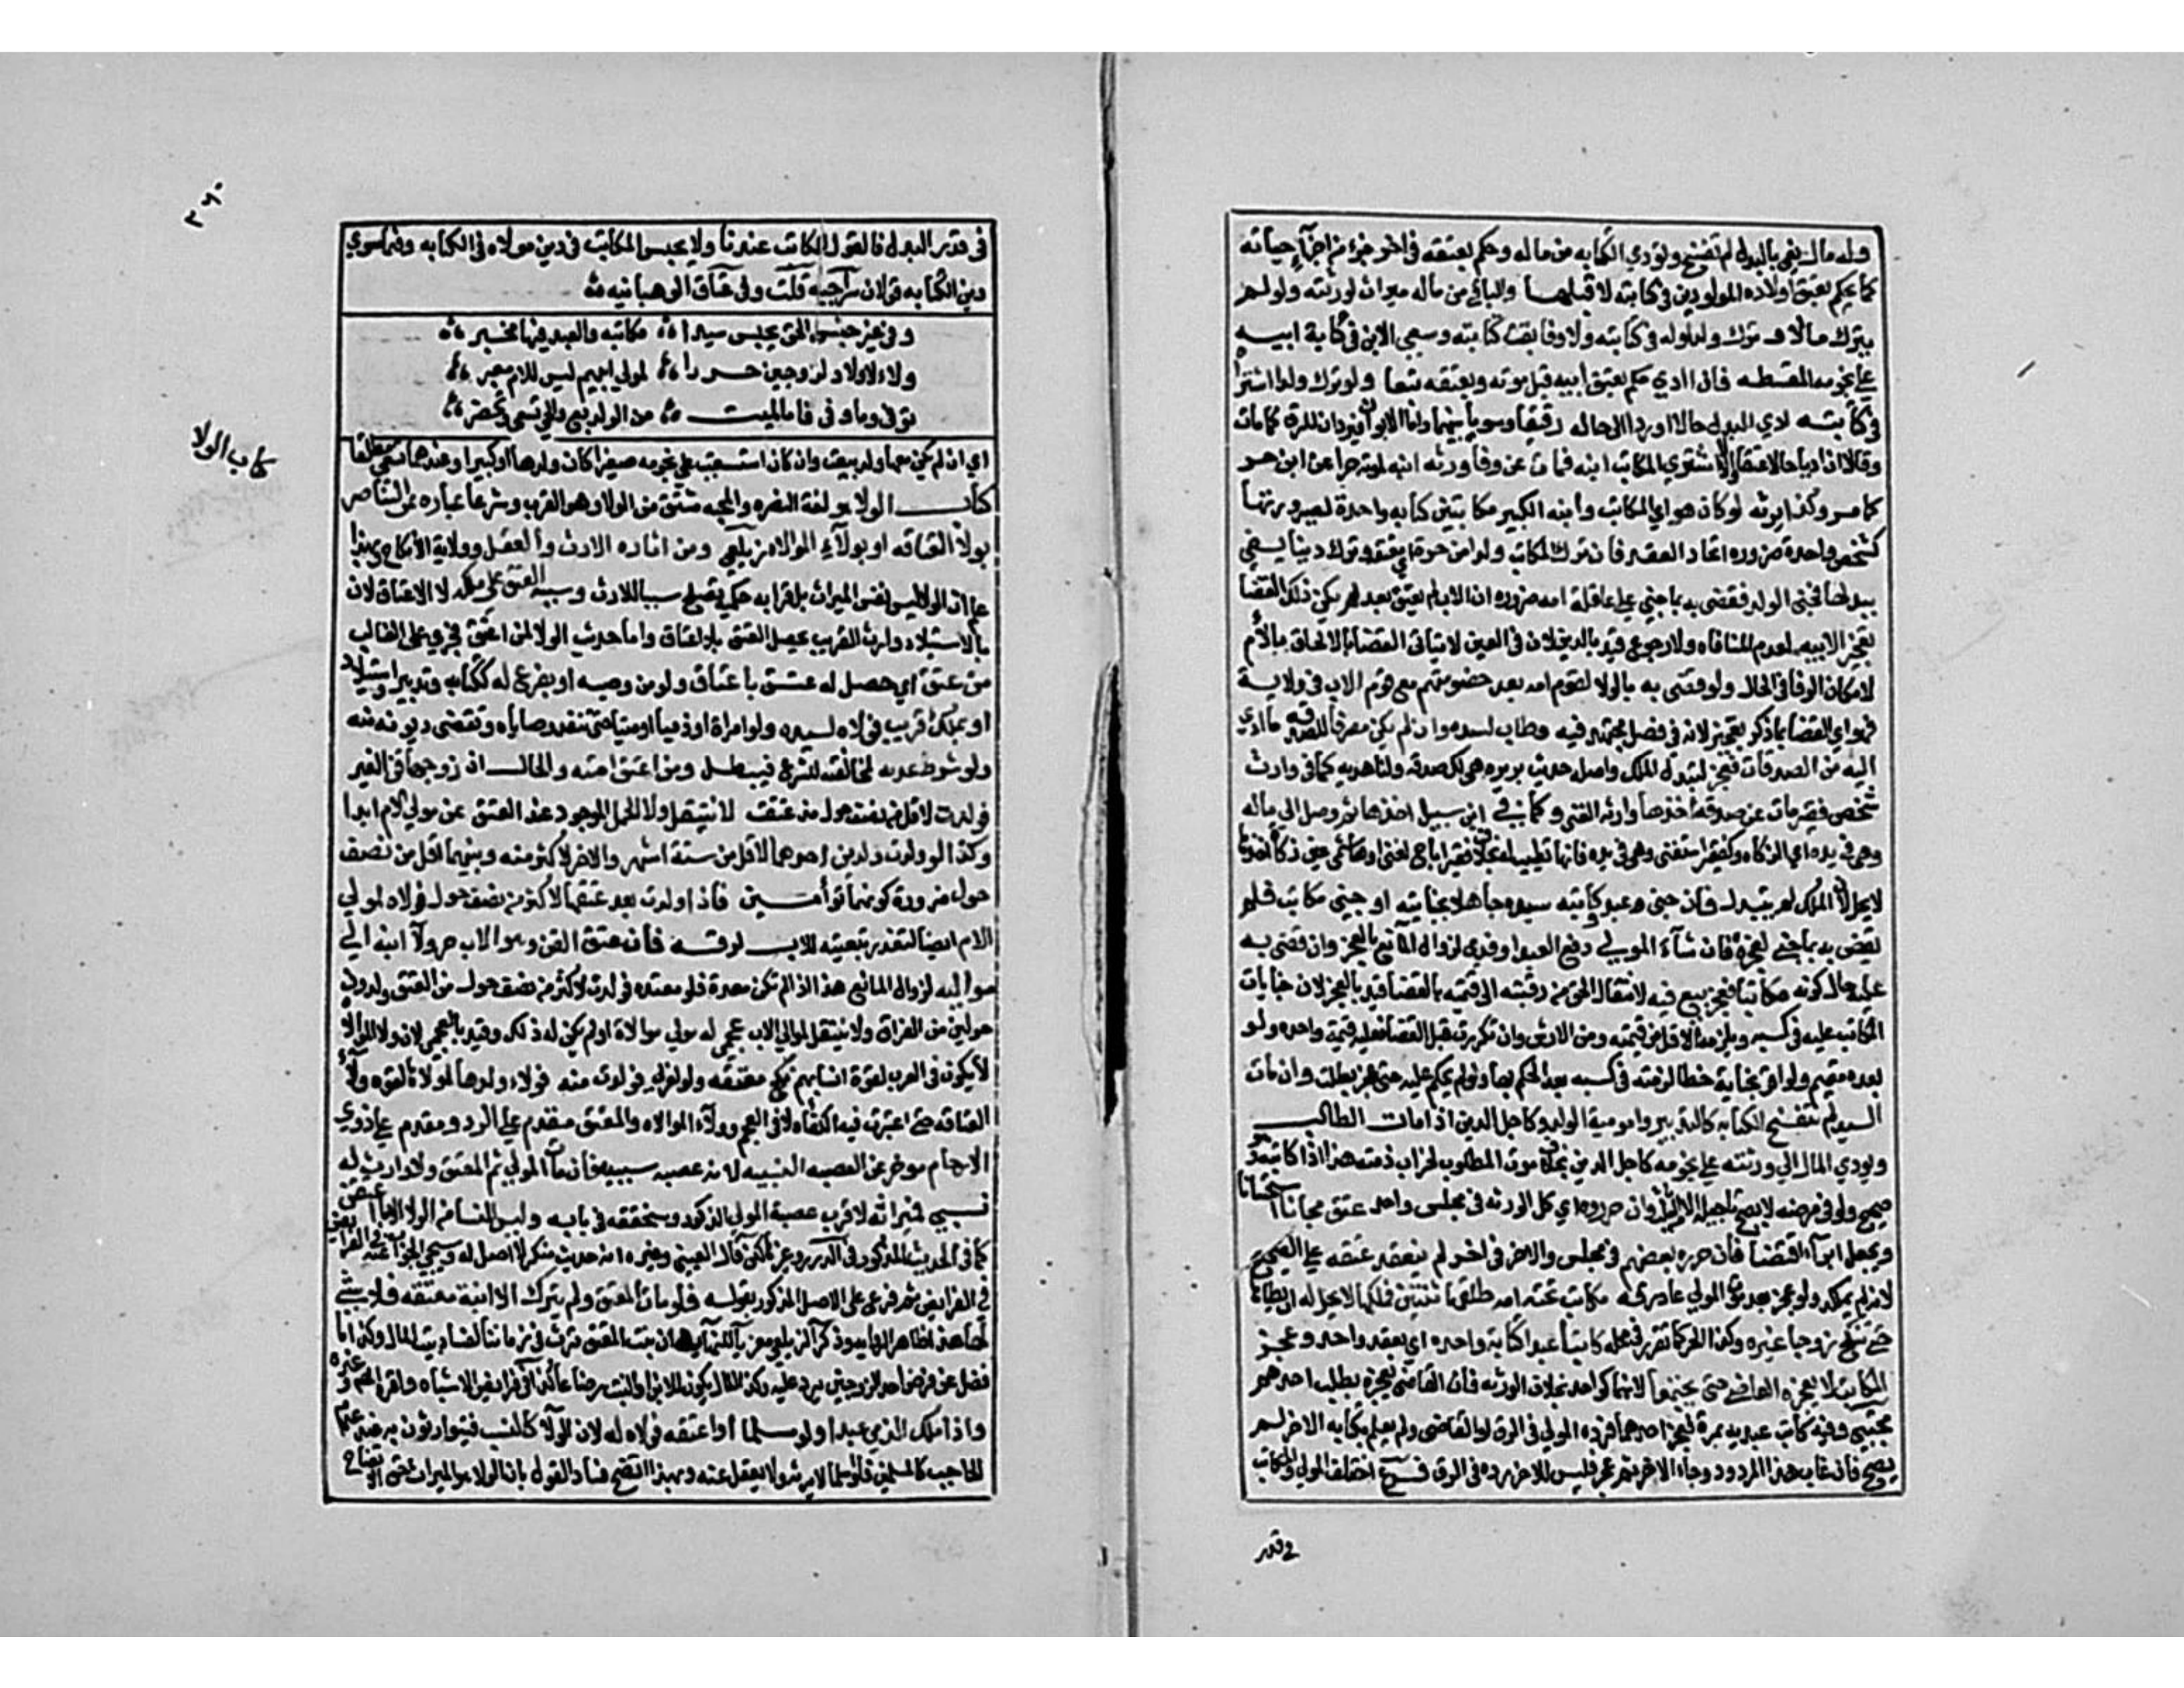 وله مال يفي بالبدل لم تفسخ وتودي الكتابه من ماله وحكم بعتقه في اخر جزء من اجزآء حياته
كما يحكم بعتق اولاده المولودين في كتابته لا قبلها والباقي من ماله ميراث لورثته ولو لم
يترك مالا وترك ولدا ولد في كتابته ولا وفا بقيت كتابته وسعي الابن في كتابة ابيه
علي نجومه المقسطه فاذا ادي حكم بعتق ابيه قبل موته وبعتقه تبعا ولو ترك ولدا اشتراه
في كتابته ادي البدل حالا او رد الي حاله رقيقا وسويا بينهما واما الابوان فيردان للرق كما مات
وقالا ان اديا حالا عتقا والا لا اشتري المكاتب ابنه فمات عن وفا ورثه ابنه لموته حرا عن ابن حر
كما مر وكذا يرثه لو كان هو اي المكاتب وابنه الكبير مكاتبين كتابه واحدة لصيرورتهما
كشخص واحد ضروره اتحاد العقد فان ترك المكاتب ولدا من حرة اي معتقه وترك دينا يفي
ببدلها فجني الولد فقضي به بما جني علي عاقلة امه ضروره ان الاب لم يعتق بعد لم يكن ذلك القضا
تعجيز الابيه لعدم المنافاه ولا رجوع قيد بالدين لان في العين لا يتاتي القضا بالالحاق بالام
لامكان الوفا في الحال ولو قضي به بالولا لقوم امه بعد خصومتهم مع قوم الاب في ولاية
فهو اي القضا بما ذكر تعجيز لانه في فصل مجتهد فيه وطاب لسيده وان لم يكن مصرفا للصدقه ما ادي
اليه من الصدقات فعجز لتبدل الملك واصله حديث بريره هي لك صدقه ولنا هديه كما في وارث
شخص فقير مات عن صدقة اخذها وارثه الغني وكما في ابن سبيل اخذها ثم وصل الي ماله
وهي في يده اي الزكاه وكفقير استغني وهي في يده فانها تطيب له بخلاف فقير اباح لغني او هاشمي عين زكاة اخذها
لا يحل لان الملك لم يتبدل فان جني عبد وكاتبه سيده جاهلا بجنايته او جني مكاتب فلم
يقض به بما جني فعجز فان شآء المولي دفع العبد او فدي لزوال المانع بالعجز وان قضي به
عليه حال كونه مكاتبا فعجز بيع فيه لانتقال الحق من رقبته الي قيمته بالقضا قيد بالعجز لان جنايات
المكاتب عليه في كسبه ويلزمه الاقل من قيمته ومن الارش وان تكررت قبل القضا فعليه قيمة واحده ولو
بعده فقيم ولو اقر بجناية خطا لزمته في كسبه بعد الحكم بها ولو لم يحكم عليه حتي عجز بطلت وان مات
السيد لم تنفسخ الكتابه كالتدبير وامومية الولد وكاجل الدين اذا مات الطالب
ويودي المال الي ورثته علي نجومه كاجل الدين بخلاف موت المطلوب لخراب ذمته هذا اذا كاتبه وهو
صحيح ولو في مرضه لا يصح تاجيله الا من الثلث وان حرروه اي كل الورثه في مجلس واحد عتق مجانا استحسانا
ويجعل ابرآء اقتضا فان حرره بعضهم في مجلس والاخر في اخر لم ينفذ عتقه علي الصحيح
لانه لم يملكه ولو عجز بعد موت المولي عاد رقه مكاتب تحته امه طلقها ثنتين فملكها لا يحل له ان يطاها
حتي تنكح زوجا غيره وكذا الحر كما تقرر في محله كاتبا عبدا كتابة واحده اي بعقد واحد وعجز
المكاتب لا يعجزه القاضي حتي يجتمعا لانهما كواحد بخلاف الورثه فان القاضي يعجزه بطلب احدهم
مجتبي وفيه كاتب عبديه بمرة فعجز احدهما فرده المولي في الرق او القاضي ولم يعلم بكتابه الاخر لم
يصح فان غاب هذا المردود وجاء الاخر ثم عجز فليس للاخر رده في الرق فرع اختلف المولي والمكاتب
في قدر
٣٦٠
في قدر البدل فالقول للمكاتب عندنا ولا يحبس المكاتب في دين مولاه في الكتابه وفيما سوي
دين الكتابه قولان سراجيه قلت وفي عتاق الوهبانيه
وفي غير جنس الحق يحبس سيدا مكاتبه والعبد فيها مخير
ولاء لاولاد لزوجين حررا لمولي ابيهم ليس للام معبر
توفي وما وفي فاما لميت من الولد بيع والحي تسعي وتحضر
اي ان لم يكن معها ولد بيعت وان كان استسعت علي نجومه صغيرا كان ولدها او كبيرا وعندهما تسعي مطلقا
كتاب الولا
كتاب الولا هو لغة النصره والمحبه مشتق من الولا وهو القرب وشرعا عباره عن التناصر
بولآ العتاقه او بولآء الموالاه زيلعي ومن اثاره الارث والعقل وولاية الانكاح وبهذا
علم ان الولا ليس نفس الميراث بل قرابه حكمية تصلح سببا للارث وسببه العتق علي ملكه لا الاعتاق لان
بالاستيلاد وارث القريب يحصل العتق بلا اعتاق واما حديث الولا لمن اعتق فجري علي الغالب
من عتق اي حصل له عتق باعتاق ولو من وصيه او بفرع له ككتابه وتدبير واستيلاد
او بملك قريب فولاه لسيده ولو امراة او ذميا او ميتا حتي تنفذ وصاياه وتقضي ديونه منه
ولو شرط عدمه لمخالفته للشرع فيبطل ومن اعتق امته والحال ان زوجها قن الغير
فولدت لاقل من نصف حول مذ عتقت لا ينتقل ولا الحمل الموجود عند العتق عن موالي الام ابدا
وكذا لو ولدت ولدين احدهما لاقل من ستة اشهر والاخر لاكثر منه وبينهما اقل من نصف
حول ضرورة كونهما توأمين فاذا ولدت بعد عتقها لاكثر من نصف حول فولاه لموالي
الام ايضا لتعذر تبعيته للاب لرقه فان عتق القن وهو الاب جر ولآ ابنه الي
مواليه لزوال المانع هذا اذا لم تكن معتدة فلو معتده فولدت لاكثر من نصف حول من العتق ولدون
حولين من الفراق ولا ينتقل لموالي الاب عجمي له مولي موالاة او لم يكن له ذلك وقيد بالعجمي لان ولا الموالاة
لا يكون في العرب لقوة انسابهم نكح معتقه ولو لعربي فولدت منه فولاء ولدها لمولاها لقوه ولآء
العتاقه حتي اعتبرت فيه الكفاه لا في العجم وولآء الموالاه والمعتق مقدم علي الرد ومقدم علي ذوي
الارحام موخر عن العصبه النسبيه لانه عصبه سببيه فان مات المولي ثم المعتق ولا وارث له
نسبي فميراثه لاقرب عصبة المولي الذكور وسنحققه في بابه وليس للنسا من الولا الا ما اعتقن
كما في الحديث المذكور في الدرر وغيرها لكن قال العيني وغيره انه حديث منكر لا اصل له وسيجي الجواب عنه
في الفرايض ثم فرع علي الاصل المذكور بقوله فلو مات المعتق ولم يترك الا ابنة معتقه فلا شي
لها هذا ظاهر الروايه وذكر الزيلعي معزيا للنهايه ان بنت المعتق ترث في زماننا لفساد بيت المال وكذا ما
فضل عن فرض احد الزوجين يرد عليه وكذا المال يكون للابن او البنت رضاعا كذا في فرايض الاشباه واقره المصنف وغيره
واذا ملك الذمي عبدا ولو مسلما او اعتقه فولاه له لان الولآ كالنسب فيتوارثون به عند عدم
الحاجب كالمسلمين فلو مسلما لا يرثه ولا يعقل عنه وبهذا اتضح فساد القول بان الولا هو الميراث حق الاتضاح